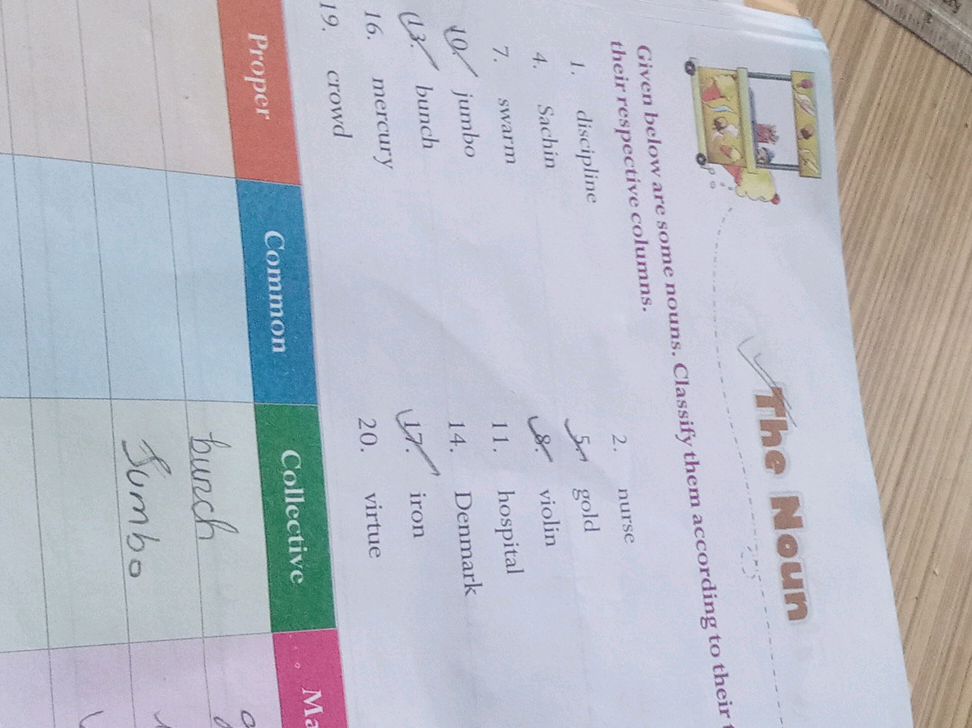 The Noun
Given below are some nouns. Classify them according to their
their respective columns.
1. discipline 2. nurse
4. Sachin 5. gold
7. swarm 8. violin
10. jumbo 11. hospital
13. bunch 14. Denmark
16. mercury 17. iron
19. crowd 20. virtue
Proper Common Collective Ma
bunch
Jumbo